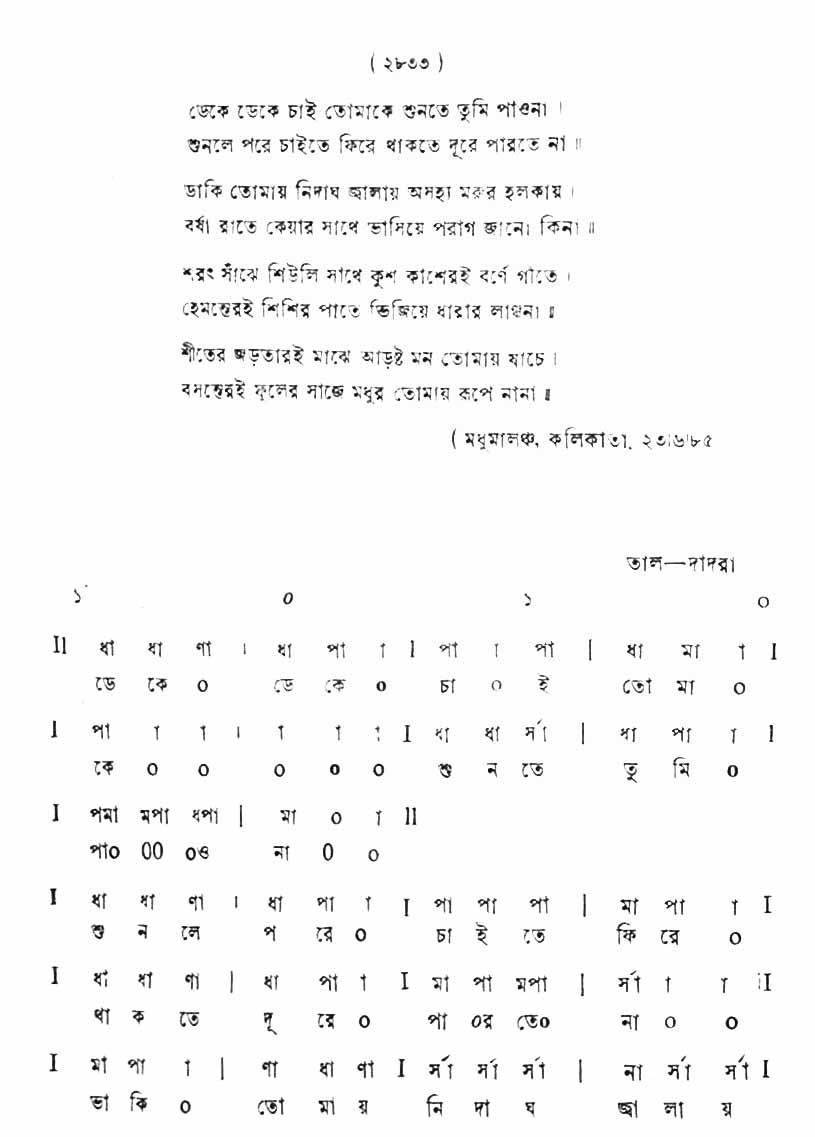 ( ২৮৩৩ )
ডেকে ডেকে চাই তোমাকে শুনতে তুমি পাওনা ।
শুনলে পরে চাইতে ফিরে থাকতে দূরে পারতে না ॥
ডাকি তোমায় নিদাঘ জ্বালায় অসহ্য মরুর হলকায় ।
বর্ষা রাতে কেয়ার সাথে ভাসিয়ে পরাগ জানো কিনা ॥
শরৎ সাঁঝে শিউলি সাথে কুশ কাশেরই বর্ণে গাঁতে ।
হেমন্তেরই শিশির পাতে ভিজিয়ে ধারার লাঞ্ছনা ॥
শীতের জড়তারই মাঝে আড়ষ্ট মন তোমায় যাচে ।
বসন্তেরই ফুলের সাজে মধুর তোমায় রূপে নানা ॥
( মধুমালঞ্চ, কলিকাতা, ২৩।৬।৮৫
তাল—দাদরা
১´ ০ ১ ০
II ধা ধা ণা । ধা পা া I পা া পা | ধা মা া I
ডে কে ০ ডে কে ০ চা ০ ই তো মা ০
I পা া া । া া া I ধা ধা র্সা | ধা পা া I
কে ০ ০ ০ ০ ০ শু ন তে তু মি ০
I পমা মপা ধপা | মা ০ া II
পা০ ০০ ০ও না ০ ০
I ধা ধা ণা । ধা পা া I পা পা পা | মা পা া I
শু ন লে প রে ০ চা ই তে ফি রে ০
I ধা ধা ণা | ধা পা া I মা পা মপা | র্সা া া II
থা ক তে দূ রে ০ পা ০র তে০ না ০ ০
I মা পা া | ণা ধা ণা I র্সা র্সা র্সা | না র্সা র্সা I
ডা কি ০ তো মা য় নি দা ঘ জ্বা লা য়